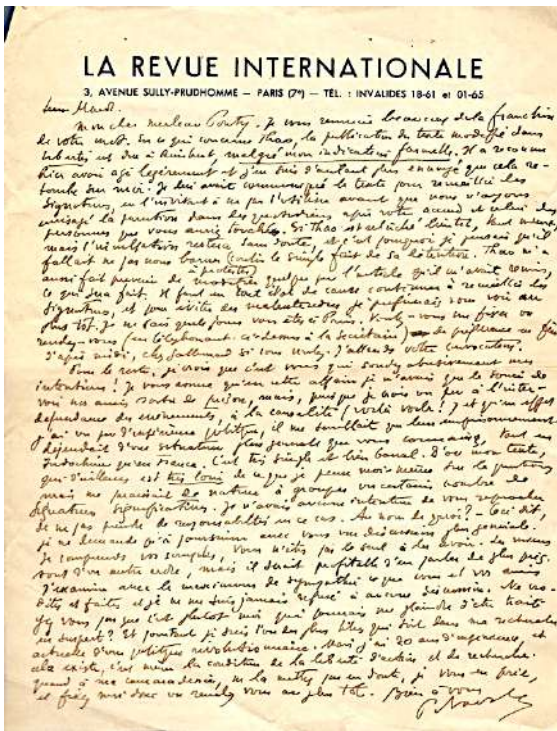 LA REVUE INTERNATIONALE
3, AVENUE SULLY-PRUDHOMME – PARIS (7e) – TÉL. : INVALIDES 18-61 et 01-65
Mon cher Merleau Ponty. Je vous remercie beaucoup de la franchise
de votre mot. En ce qui concerne Thao, la publication du texte modifié dans
est due à Rimbert, malgré mon indication formelle. Il a reconnu
hier avoir agi légèrement et j'en suis d'autant plus ennuyé que cela re-
tombe sur moi. Je lui avais communiqué le texte pour recueillir des
signatures, en l'invitant à ne pas l'utiliser avant que nous n'ayons
envisagé la parution dans les quotidiens après votre accord et celui des
personnes que vous auriez touchées. Si Thao est relâché bientôt, tant mieux,
mais l'inculpation restera sans doute, et c'est pourquoi je pensais qu'il
fallait ne pas nous borner à protester contre le simple fait de sa détention. Thao m'a
aussi fait prévenir de modifier quelque peu l'article qu'il m'avait remis,
ce qui sera fait. Il faut en tout état de cause continuer à recueillir des
signatures, et pour éviter des malentendus je préférerais vous voir au
plus tôt. Je ne sais quels jours vous êtes à Paris. Voulez-vous me fixer un
rendez-vous (en téléphonant ci-dessus à la secrétaire) de préférence en fin
d'après midi, chez Gallimard si vous voulez. J'attends votre convocation.
Pour le reste, je crois que c'est vous qui abusivement mes
intentions! Je vous assure qu'en cette affaire je n'avais que le souci de
voir nos amis sortir de prison, mais, puisque je crois un peu à l'inter-
dépendance des événements, à la causalité (voilà voilà!) et qu'en effet
j'ai un peu d'expérience politique, il me semblait que leur emprisonnement
dépendait d'une situation plus générale que vous connaissez, tant en
Indochine qu'en France. C'est très simple et bien banal. D'où mon texte,
qui d'ailleurs est très loin de ce que je pense moi-même sur la question
mais me paraissait de nature à grouper un certain nombre de
signatures significatives. Je n'avais aucune intention de vous reprocher
de ne pas prendre de responsabilités en ce cas. Au nom de quoi? – Ceci dit,
je ne demande qu'à poursuivre avec vous une discussion plus générale.
Je comprends vos scrupules, vous n'êtes pas le seul à en avoir. Les miens
sont d'un autre ordre, mais il serait profitable d'en parler de plus près.
J'examine avec le maximum de sympathie ce que vous et vos amis
dites et faites et je ne me suis jamais refusé à aucune discussion. Ne
vous pas que c'est plutôt moi qui pourrais me plaindre d'être traité
en suspect? Et pourtant je suis l'un des plus libres qui soit dans ma recherche
actuelle d'une politique révolutionnaire. Mais j'ai 20 ans d'expérience, et
cela existe, c'est même la condition de la liberté d'action et de recherche.
Quant à ma camaraderie, ne la mettez pas en doute, je vous en prie,
et fixez moi donc un rendez vous au plus tôt. Bien à vous
P. Naville